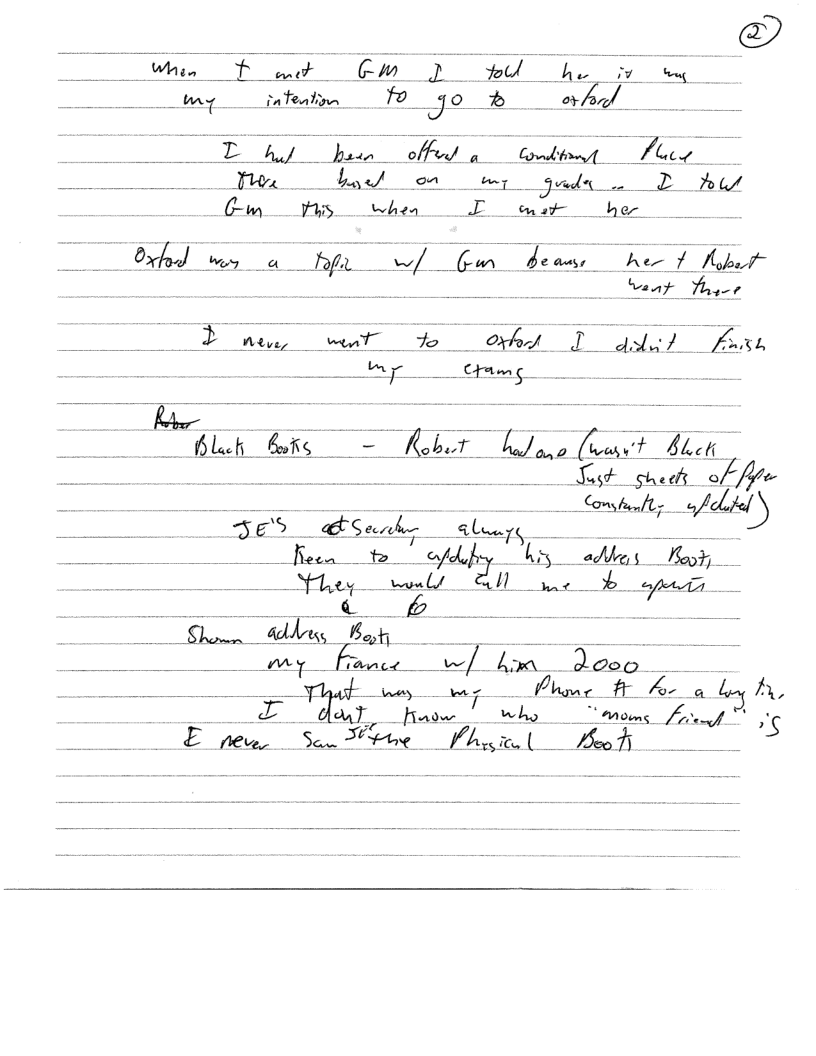 2
When I met GM I told her it was
my intention to go to oxford
I had been offered a conditional place
there based on my grades .. I told
Gm this when I met her
Oxford was a topic w/ Gm because her + Robert
went there
I never went to oxford I didn't finish
my exams
Rober
Black Books - Robert had one (wasn't Black
Just sheets of Paper
constantly updated)
JE's Secretary always
Keen to updating his address Book,
They would call me to
Shown address Book
my fiance w/ him 2000
That was my Phone # for a long
I don't know who "moms friend" is
I never saw JE's the Physical Book